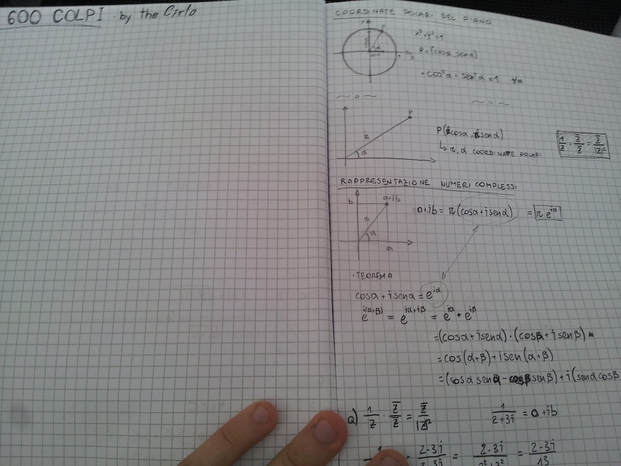 600 COLPI by the Cirlo
COORDINATE POLARI DEL PIANO
x²+y²=1
P=(cosα, senα)
cos²α + sen²α = 1 ∀α
P
r
α
P(rcosα, rsenα)
↳ r, α COORDINATE POLARI
1/z · z̄/z̄ = z̄/|z|²
RAPPRESENTAZIONE NUMERI COMPLESSI
b
a+ib
r
α
a
a+ib = r(cosα+isenα) = r e^{iα}
·TEOREMA
cosα+isenα = e^{iα}
e^{i(α+β)} = e^{iα+iβ} = e^{iα} · e^{iβ}
=(cosα+isenα)·(cosβ+isenβ)=
=cos(α+β)+isen(α+β)
1/z · z̄/z̄ = z̄/|z|²
1/2+3i = a+ib
2-3i = 2-3i = 2-3i
13